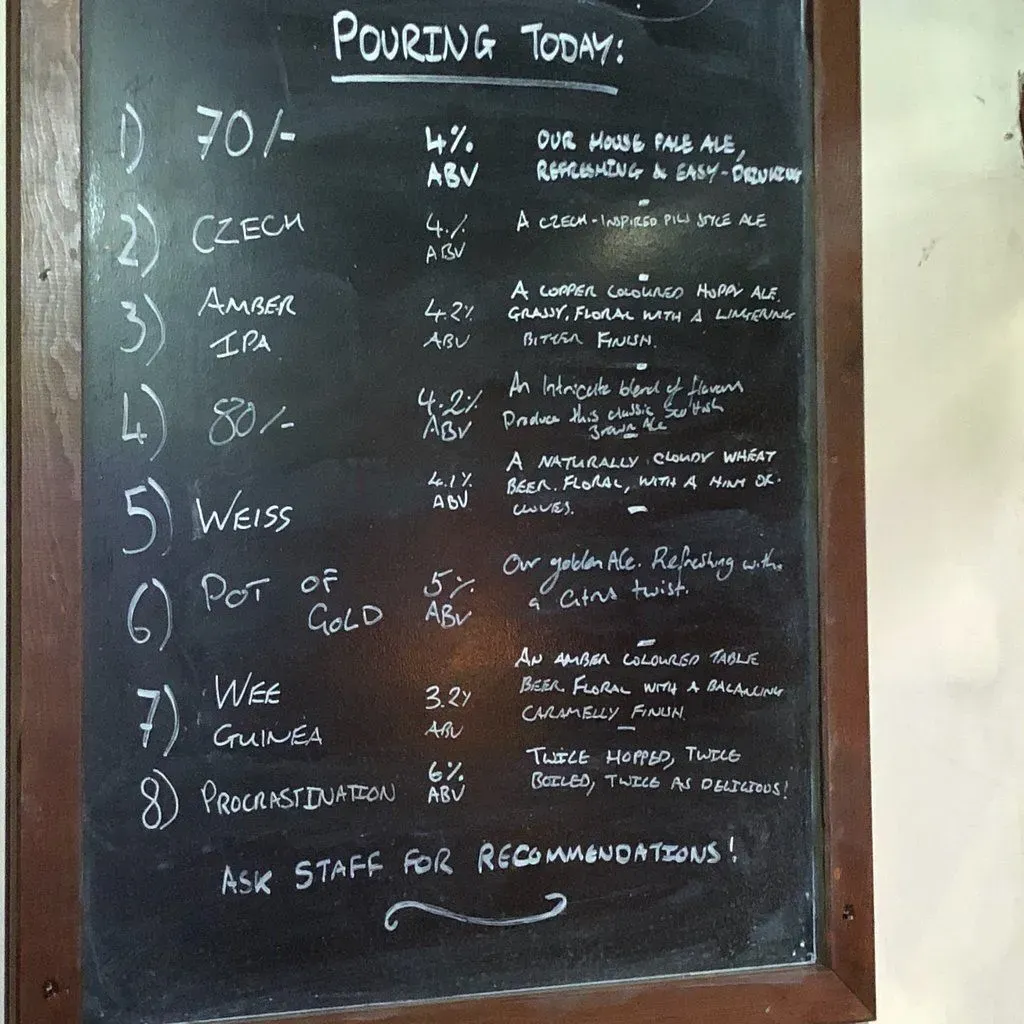 POURING TODAY:
1) 70/- 4% ABV OUR HOUSE PALE ALE,
REFRESHING & EASY-DRINKING
2) CZECH 4% ABV A CZECH-INSPIRED PILS STYLE ALE
3) AMBER IPA 4.2% ABV A COPPER COLOURED HOPPY ALE.
GRASSY, FLORAL WITH A LINGERING
BITTER FINISH.
4) 80/- 4.2% ABV An Intricate blend of flavours
Produce this classic Scottish
Brown Ale
5) WEISS 4.1% ABV A NATURALLY CLOUDY WHEAT
BEER. FLORAL, WITH A HINT OF
CLOVES.
6) POT OF GOLD 5% ABV Our golden Ale. Refreshing with
a Citrus twist.
7) WEE GUINEA 3.2% ABV AN AMBER COLOURED TABLE
BEER. FLORAL WITH A BALANCING
CARAMELLY FINISH.
8) PROCRASTINATION 6% ABV TWICE HOPPED, TWICE
BOILED, TWICE AS DELICIOUS!
ASK STAFF FOR RECOMMENDATIONS!